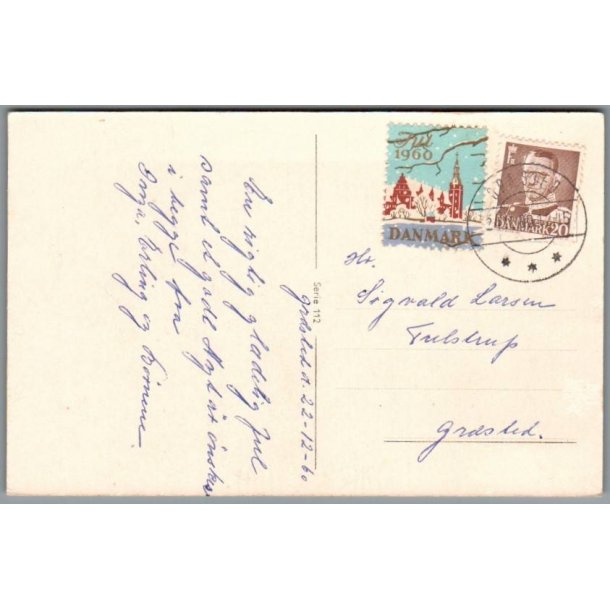 Græsted d. 22-12-60
En rigtig glædelig Jul
samt et godt Nytår ønskes
i begge fra
Erling og Børnene.
Serie 112
Jul
1960
DANMARK
DANMARK 20
Hr.
Sigvald Larsen
Tulstrup
Græsted.